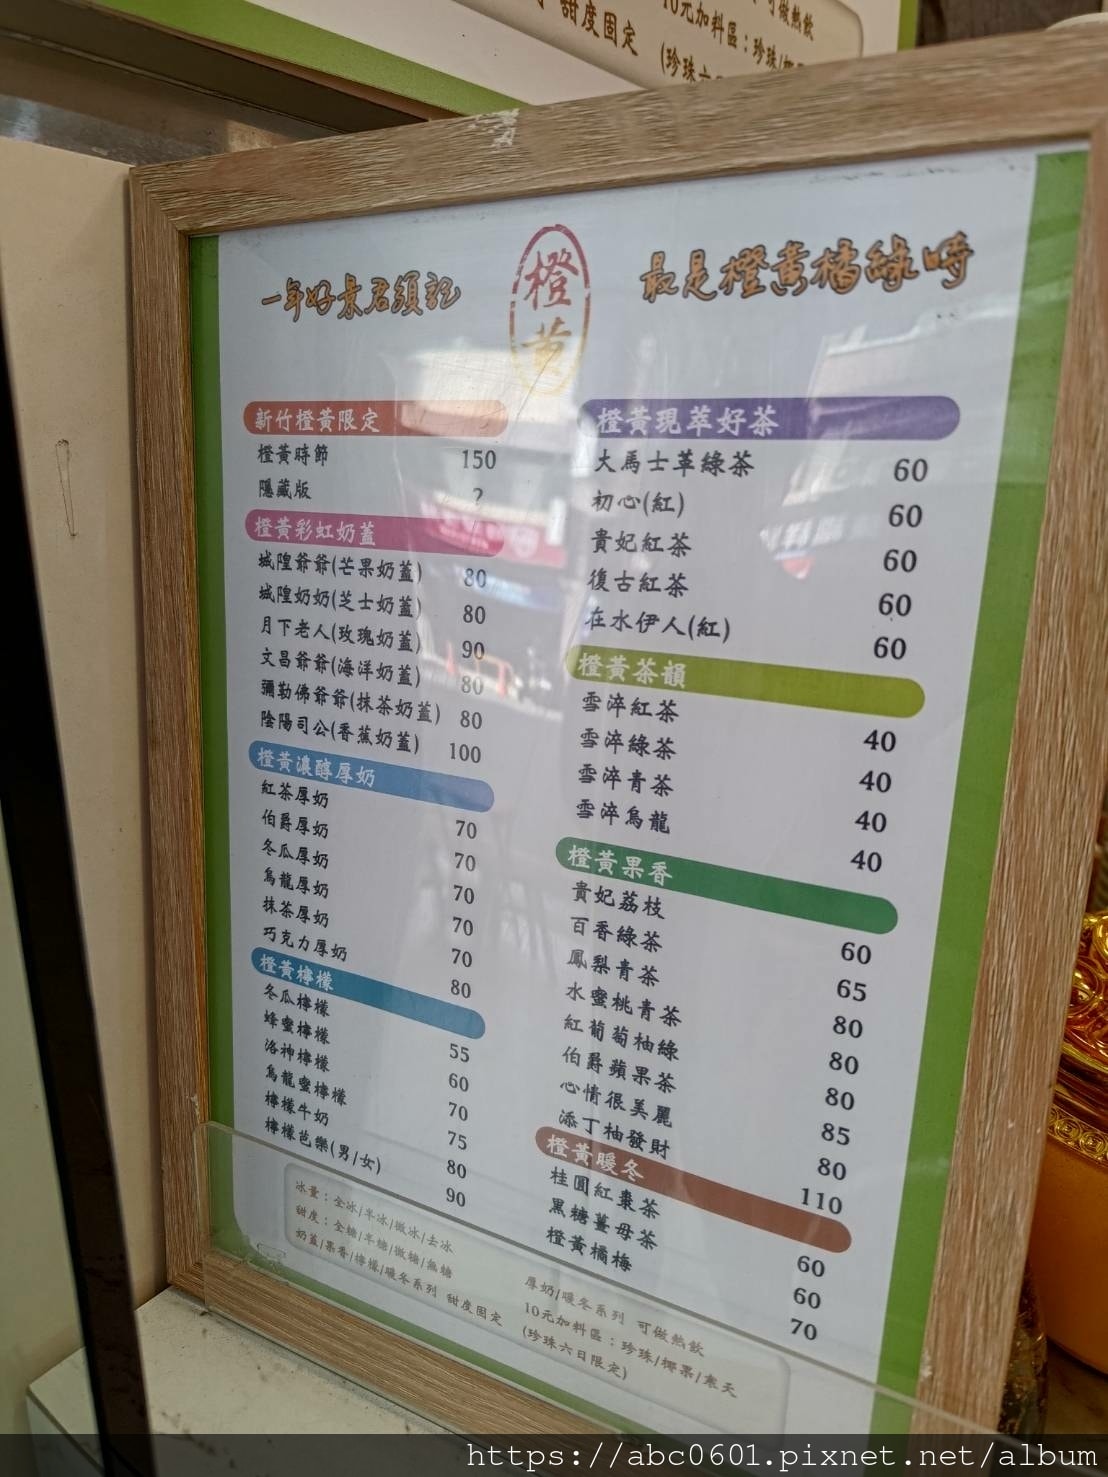 甜度固定
可做熱飲
10元加料區：珍珠/椰
(珍珠六日
一年好景君須記
橙黃
最是橙黃橘綠時
新竹橙黃限定
橙黃時節 150
隱藏版 ?
橙黃彩虹奶蓋
城隍爺爺(芒果奶蓋) 80
城隍奶奶(芝士奶蓋) 80
月下老人(玫瑰奶蓋) 90
文昌爺爺(海洋奶蓋) 80
彌勒佛爺爺(抹茶奶蓋) 80
陰陽司公(香蕉奶蓋) 100
橙黃濃醇厚奶
紅茶厚奶 70
伯爵厚奶 70
冬瓜厚奶 70
烏龍厚奶 70
抹茶厚奶 70
巧克力厚奶 80
橙黃檸檬
冬瓜檸檬 55
蜂蜜檸檬 60
洛神檸檬 70
烏龍蜜檸檬 75
檸檬牛奶 80
檸檬芭樂(男/女) 90
橙黃現萃好茶
大馬士革綠茶 60
初心(紅) 60
貴妃紅茶 60
復古紅茶 60
在水伊人(紅) 60
橙黃茶韻
雪淬紅茶 40
雪淬綠茶 40
雪淬青茶 40
雪淬烏龍 40
橙黃果香
貴妃荔枝 60
百香綠茶 65
鳳梨青茶 80
水蜜桃青茶 80
紅葡萄柚綠 80
伯爵蘋果茶 85
心情很美麗 80
添丁柚發財 110
橙黃暖冬
桂圓紅棗茶 60
黑糖薑母茶 60
橙黃橘梅 70
冰量：全冰/半冰/微冰/去冰
甜度：全糖/半糖/微糖/無糖
奶蓋/果香/檸檬/暖冬系列 甜度固定
厚奶/暖冬系列 可做熱飲
10元加料區：珍珠/椰果/寒天
(珍珠六日限定)
https://abc0601.pixnet.net/album